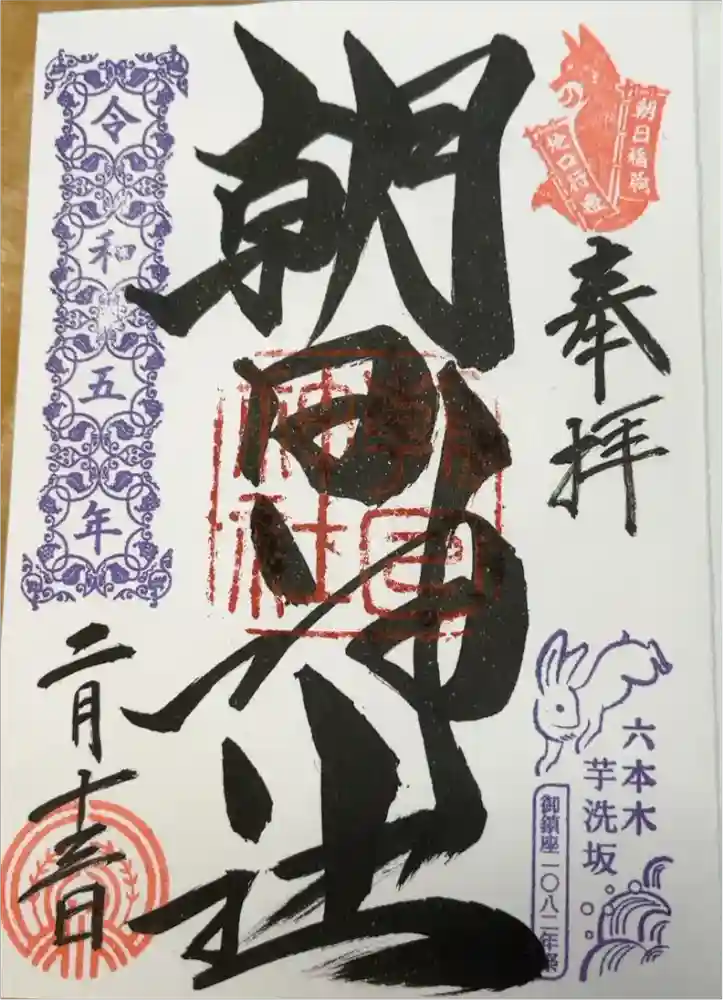 朝日稲荷
地口行燈
奉拝
六本木
芋洗坂
御鎮座一〇八二年祭
朝日神社
朝日
神社
令和五年
二月十三日